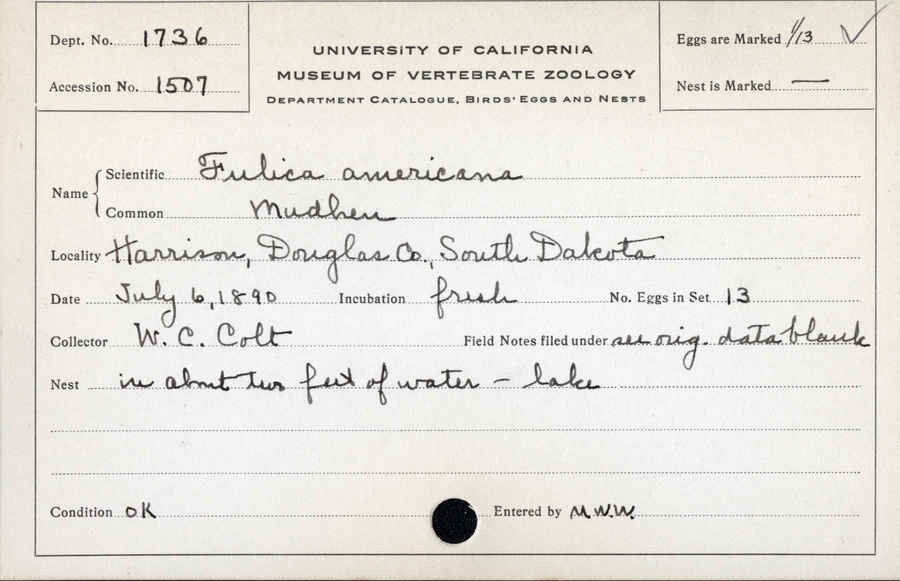 Dept. No. 1736
Accession No. 1507
UNIVERSITY OF CALIFORNIA
MUSEUM OF VERTEBRATE ZOOLOGY
DEPARTMENT CATALOGUE, BIRDS' EGGS AND NESTS
Eggs are Marked 1/13 ✓
Nest is Marked —
Name { Scientific Fulica americana
Common Mudhen
Locality Harrison, Douglas Co., South Dakota
Date July 6, 1890 Incubation fresh No. Eggs in Set 13
Collector W. C. Colt Field Notes filed under see orig. data blank
Nest in about two feet of water – lake
Condition OK Entered by M.W.W.